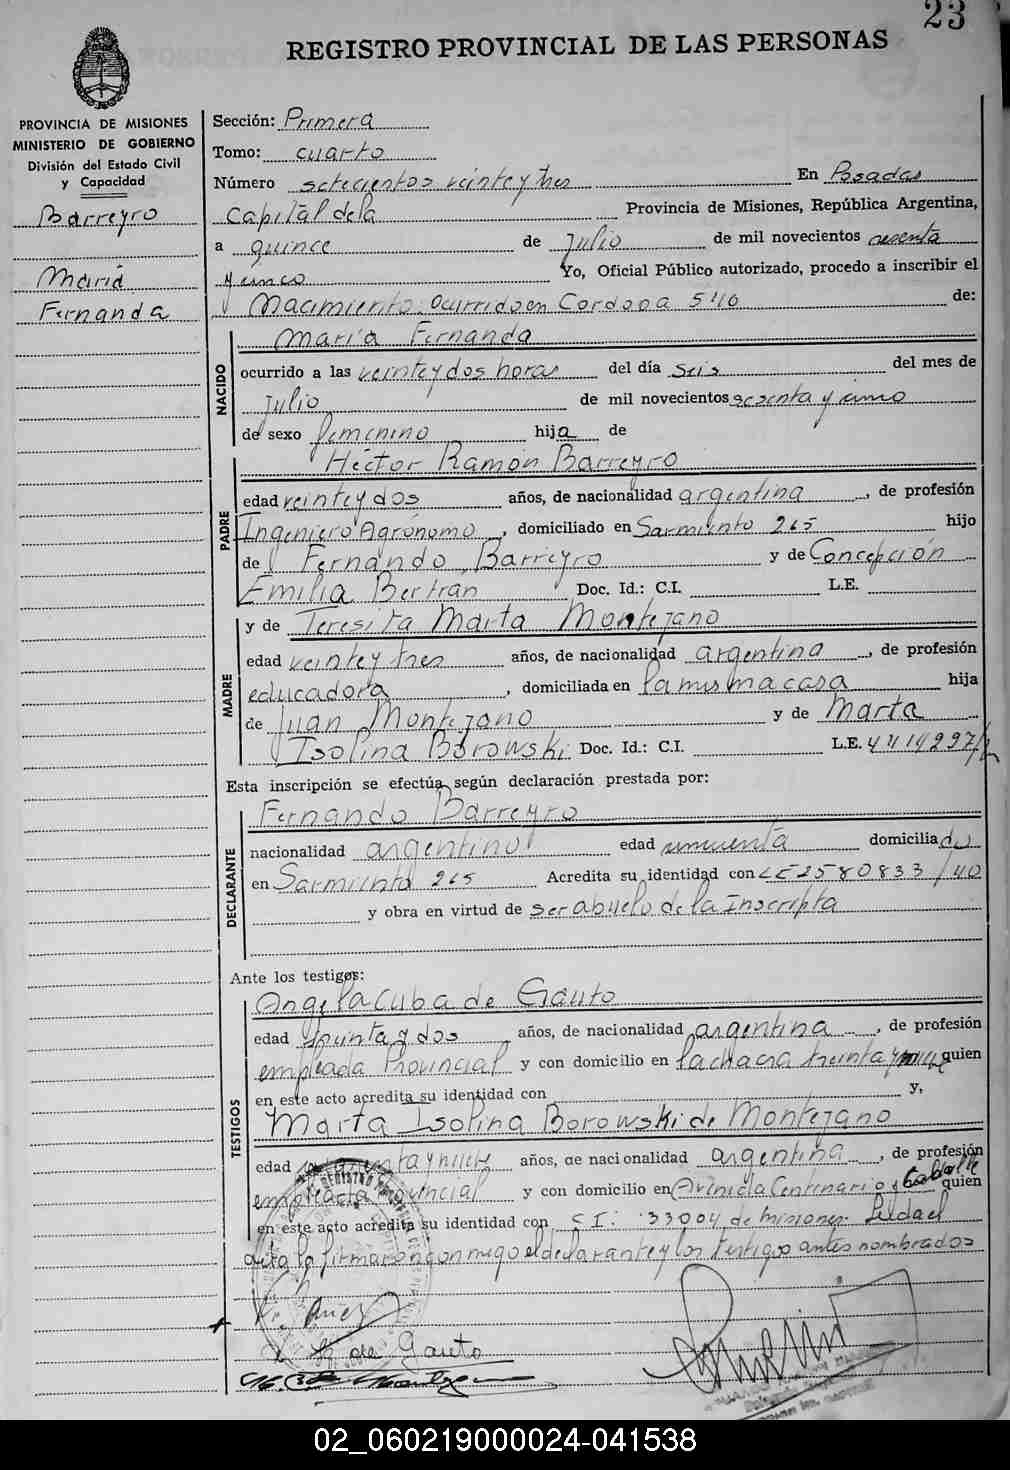 23
REGISTRO PROVINCIAL DE LAS PERSONAS
PROVINCIA DE MISIONES
MINISTERIO DE GOBIERNO
División del Estado Civil
y Capacidad
Barreyro
María
Fernanda
Sección: Primera
Tomo: cuarto
Número setecientos veinte y tres En Posadas
Capital de la Provincia de Misiones, República Argentina,
a quince de Julio de mil novecientos sesenta
y cinco Yo, Oficial Público autorizado, procedo a inscribir el
Nacimiento ocurrido en Cordoba 540 de:
NACIDO
María Fernanda
ocurrido a las veinte y dos horas del día seis del mes de
Julio de mil novecientos sesenta y cinco
de sexo femenino hija de
PADRE
Héctor Ramón Barreyro
edad veinte y dos años, de nacionalidad argentina, de profesión
Ingeniero Agrónomo, domiciliado en Sarmiento 265 hijo
de Fernando Barreyro y de Concepción
Emilia Bertran Doc. Id.: C.I. L.E.
MADRE
y de Teresita Marta Montejano
edad veinte y tres años, de nacionalidad argentina, de profesión
educadora, domiciliada en la misma casa hija
de Juan Montejano y de Marta
Isolina Borowski Doc. Id.: C.I. L.E.
Esta inscripción se efectúa según declaración prestada por:
DECLARANTE
Fernando Barreyro
nacionalidad argentino edad cincuenta domiciliado
en Sarmiento 265 Acredita su identidad con CE 2580833/40
y obra en virtud de ser abuelo de la inscripta
Ante los testigos:
TESTIGOS
Angela Cuba de Gauto
edad años, de nacionalidad argentina, de profesión
empleada Provincial y con domicilio en la chacra treinta y nueve quien
en este acto acredita su identidad con y,
Marta Isolina Borowski de Montejano
edad y nueve años, de nacionalidad argentina, de profesión
empleada Provincial y con domicilio en Avenida Centenario y quien
en este acto acredita su identidad con C I: 33004 de misiones. Leida el
acta la firmaron conmigo el declarante y los testigos antes nombrados
de Gauto
02_060219000024-041538